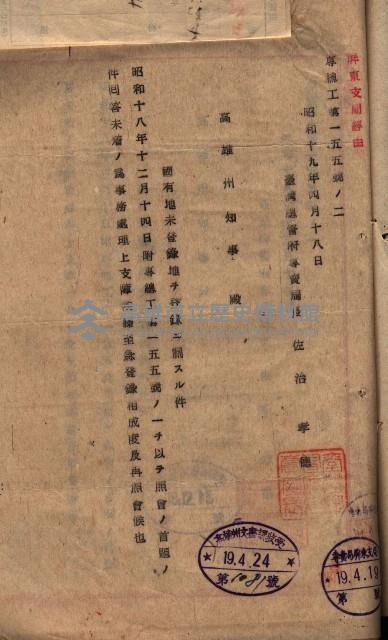 屏東支局經由
專總工第一五五號ノ二
昭和十九年四月十八日
臺灣總督府專賣局長 佐治孝德
高雄州知事殿
國有地未登錄地ヲ登錄ニ關スル件
昭和十八年十二月十四日附專總工第一五五號ノ一ヲ以テ照會ノ首題ノ
件回答未着ノ爲事務處理上支障
至急登錄相成度及再照會候也
高雄市立歷史博物館
19.4.24
第1081號
19.4.19
第 號